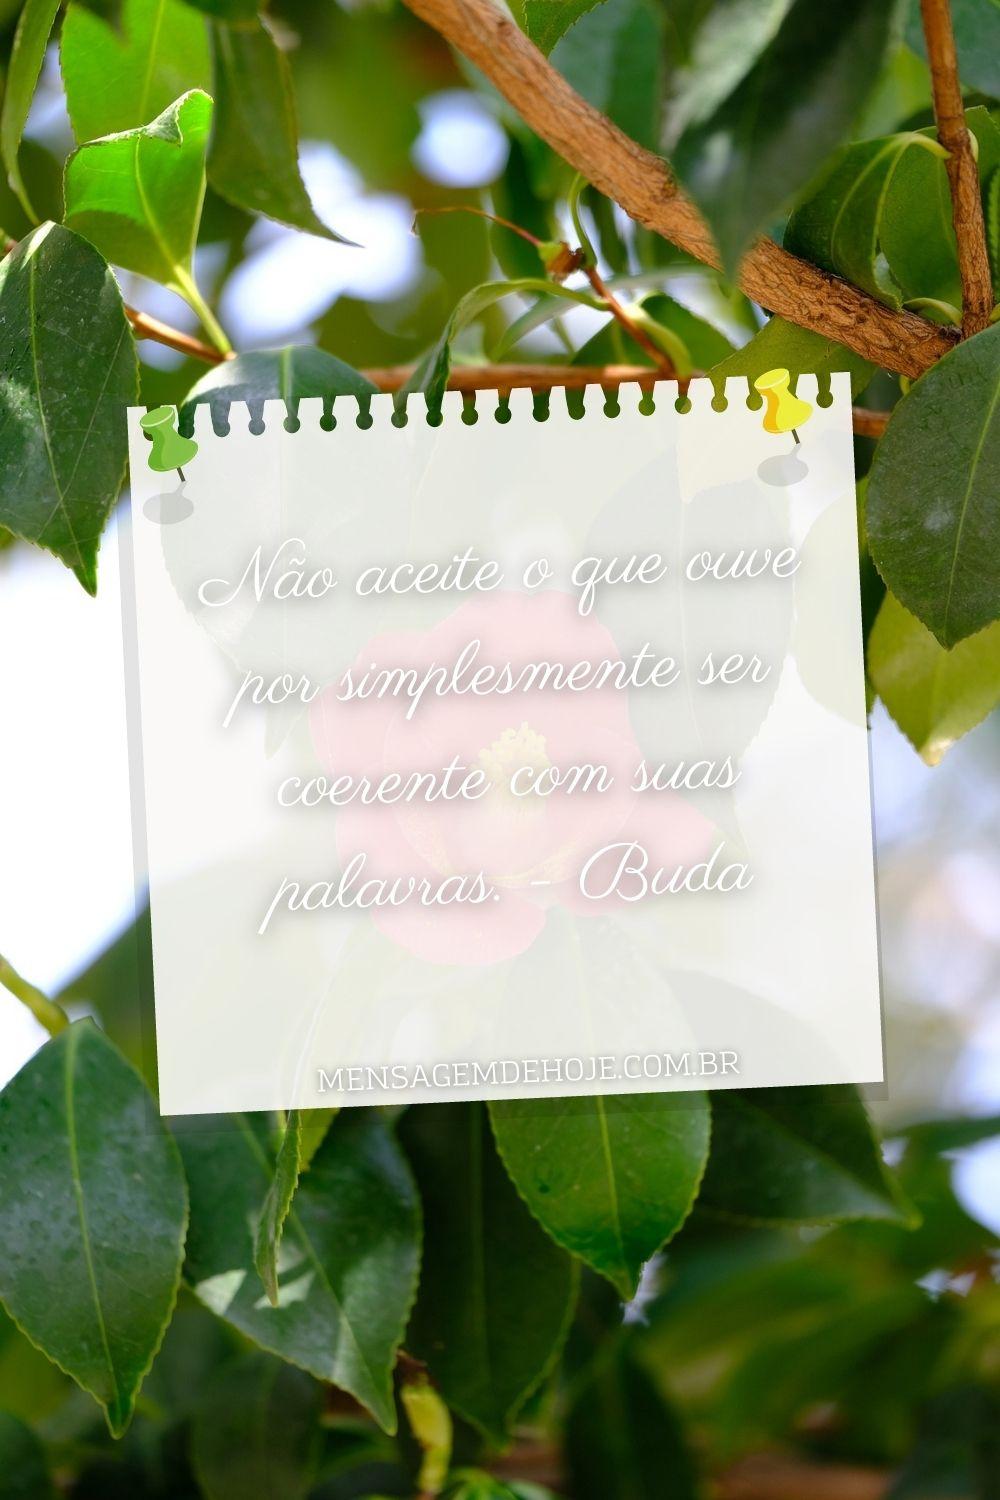 Não aceite o que ouve
por simplesmente ser
coerente com suas
palavras. - Buda
MENSAGEMDEHOJE.COM.BR